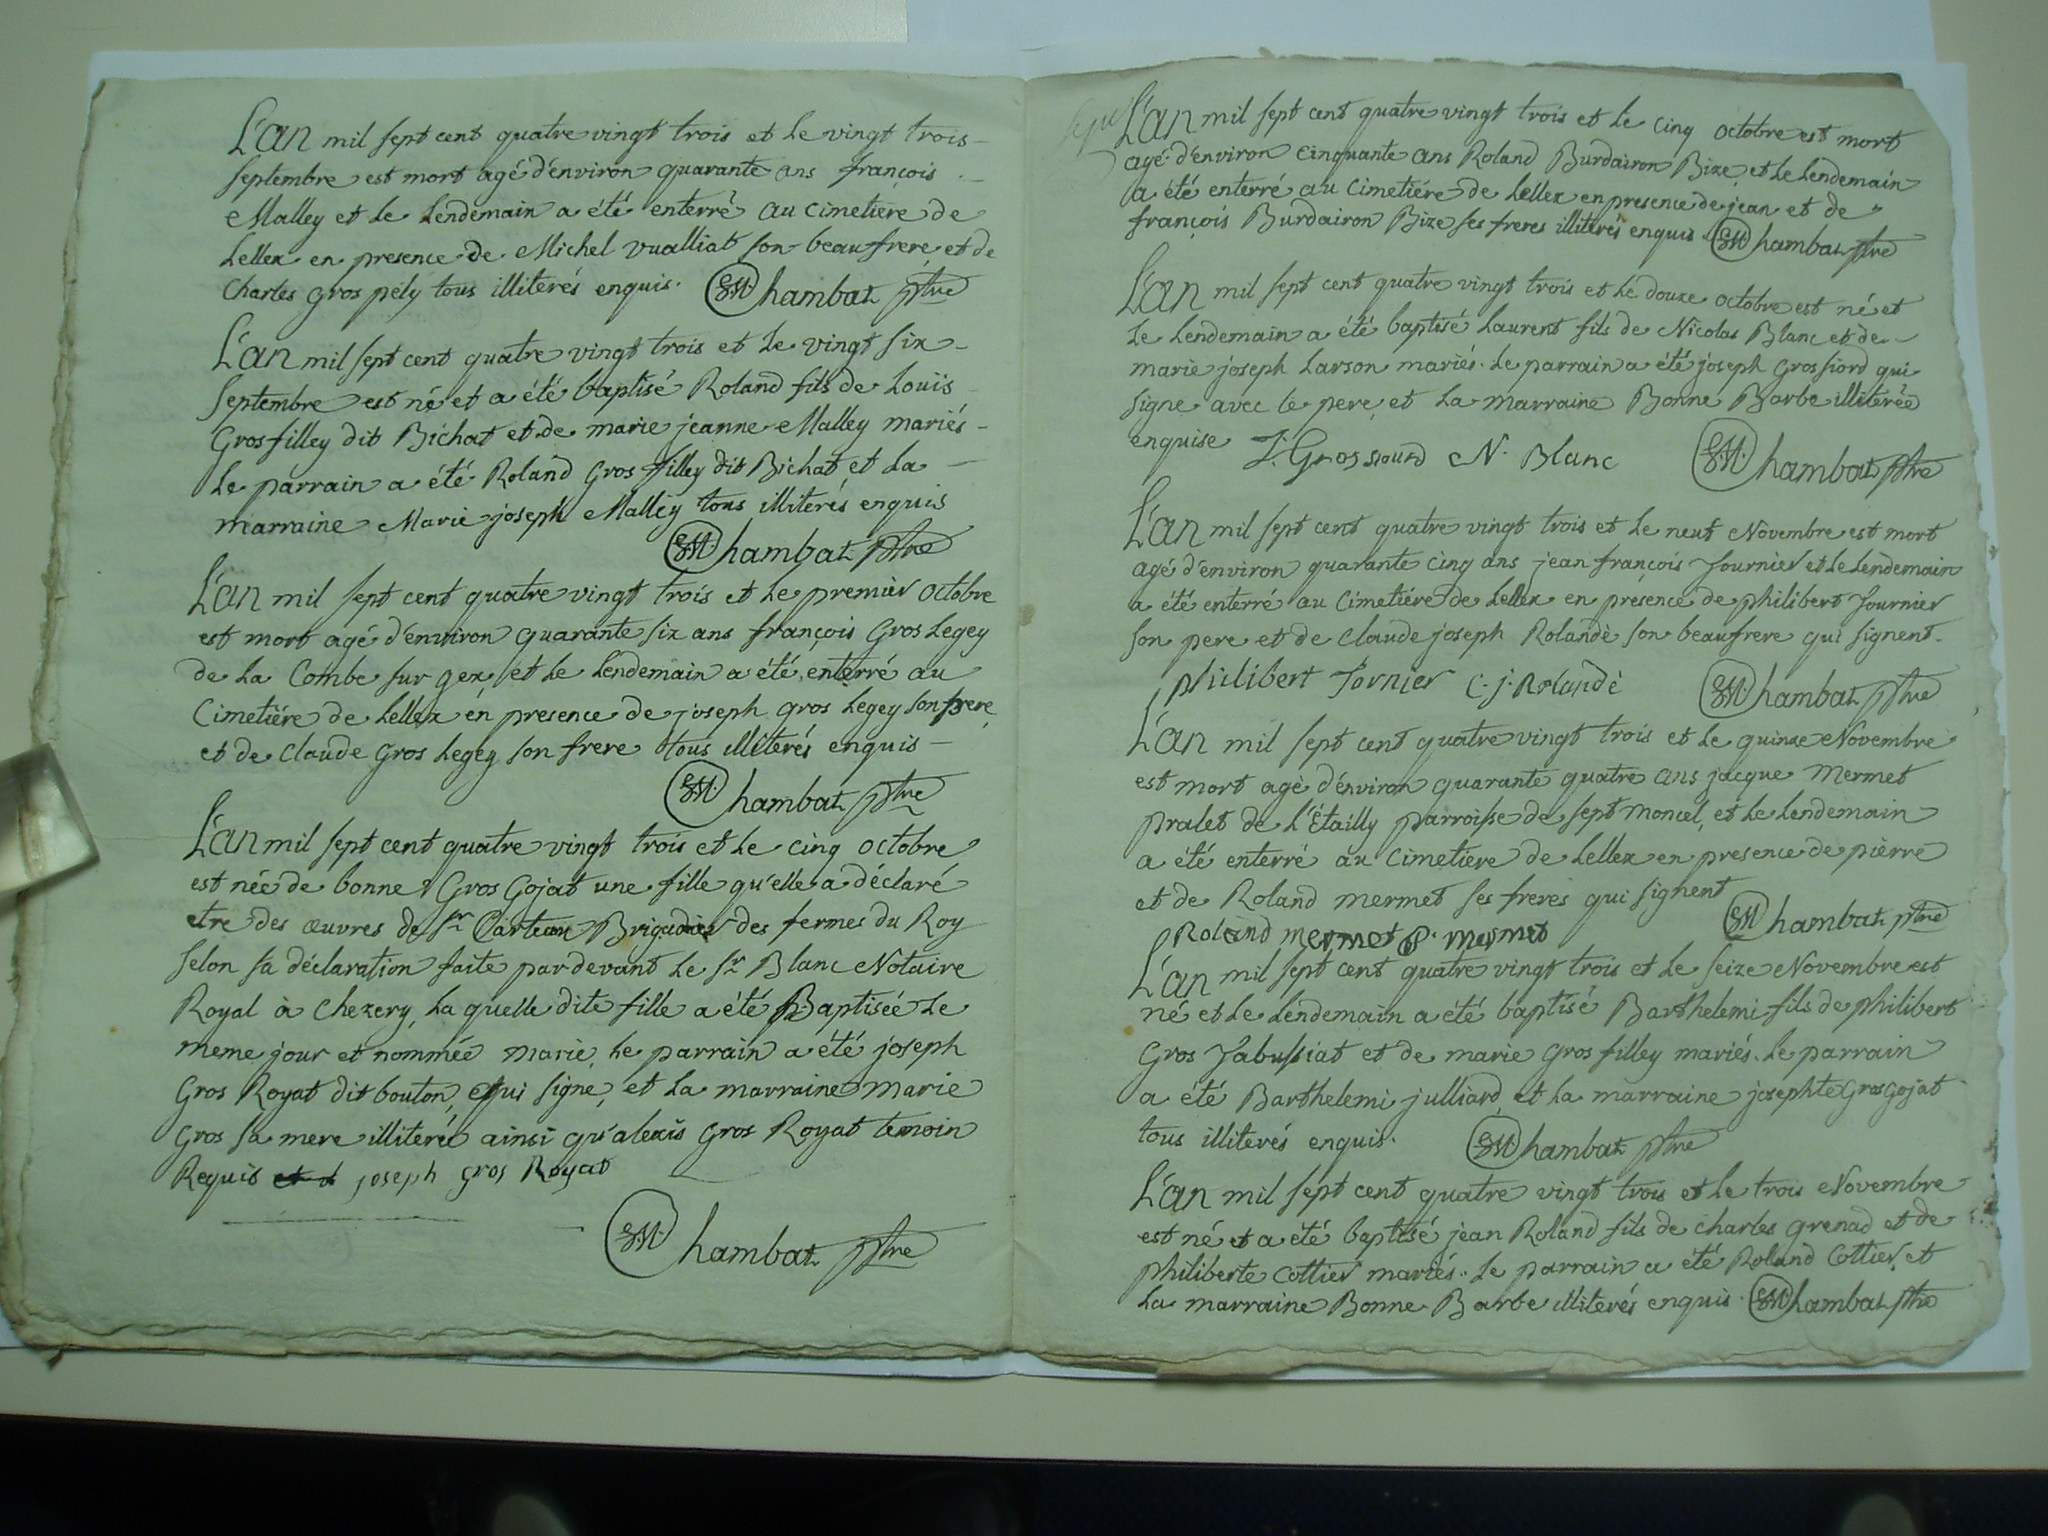 L'an mil sept cent quatre vingt trois et le vingt trois
septembre est mort agé d'environ quarante ans françois
Malley et le lendemain a été enterré au cimetiere de
Lellex en presence de Michel vualliat son beaufrere et de
Charles gros pely tous illiterés enquis. Chambat ptre
L'an mil sept cent quatre vingt trois et le vingt six
Septembre est né et a été baptisé Roland fils de Louïs
Grosfilley dit Bichat et de marie jeanne Malley mariés
le parrain a été Roland Gros filley dit Bichat et la
marraine Marie joseph Malley tous illiterés enquis
Chambat ptre
L'an mil sept cent quatre vingt trois et le premier octobre
est mort agé d'environ quarante six ans françois Gros Legey
de la Combe sur gex, et le lendemain a été enterré au
Cimetiére de Lellex en presence de joseph gros Legey son frere
et de Claude Gros Legey son frere tous illiterés enquis
Chambat ptre
L'an mil sept cent quatre vingt trois et le cinq octobre
est née de bonne Gros Gojat une fille qu'elle a déclaré
etre des œuvres de Sr Carteau Brigadier des fermes du Roy
selon sa déclaration faite pardevant le Sr Blanc Notaire
Royal à Chezery, la quelle dite fille a été Baptisée le
meme jour et nommée marie, le parrain a été joseph
Gros Royat dit bouton, qui signe, et la marraine marie
Gros sa mere illiterée ainsi qu'alexis Gros Royat temoin
Requis et d joseph gros Royat
Chambat ptre
L'an mil sept cent quatre vingt trois et le cinq octobre est mort
agé d'environ cinquante ans Roland Burdairon Bize, et le lendemain
a été enterré au Cimetiére de Lellex en presence de jean et de
françois Burdairon Bize ses freres illiterés enquis Chambat ptre
L'an mil sept cent quatre vingt trois et le douze octobre est né et
le lendemain a été baptisé Laurent fils de Nicolas Blanc et de
marie joseph Larson mariés. le parrain a été joseph Grossiord qui
signe avec le pere, et la marraine Bonne Barbe illiterée
enquise J. Grossiourd N. Blanc Chambat ptre
L'an mil sept cent quatre vingt trois et le neuf Novembre est mort
agé d'environ quarante cinq ans jean françois fournier et le lendemain
a été enterré au Cimetiére de Lellex en présence de philibert fournier
son pere et de Claude joseph Rolandè son beaufrere qui signent.
philibert fornier C. j. Rolandè Chambat ptre
L'an mil sept cent quatre vingt trois et le quinze Novembre
est mort agé d'environ quarante quatre ans jacque Mermet
pralet de l'Etailly parroisse de sept moncel, et le lendemain
a été enterré au Cimetiere de Lellex en presence de pierre
et de Roland mermet ses freres qui signent
Roland mermet P. mermet Chambat ptre
L'an mil sept cent quatre vingt trois et le seize Novembre est
né et le lendemain a été baptisé Barthelemi fils de philibert
Gros Jabussiat et de marie Gros filley mariés. le parrain
a été Barthelemi julliard, et la marraine josephte Gros Gojat
tous illiterés enquis. Chambat ptre
L'an mil sept cent quatre vingt trois et le trois Novembre
est né et a été baptisé jean Roland fils de charles grenad et de
philiberte Cottier mariés. le parrain a été Roland Cottier, et
la marraine Bonne Barbe illiterés enquis. Chambat ptre